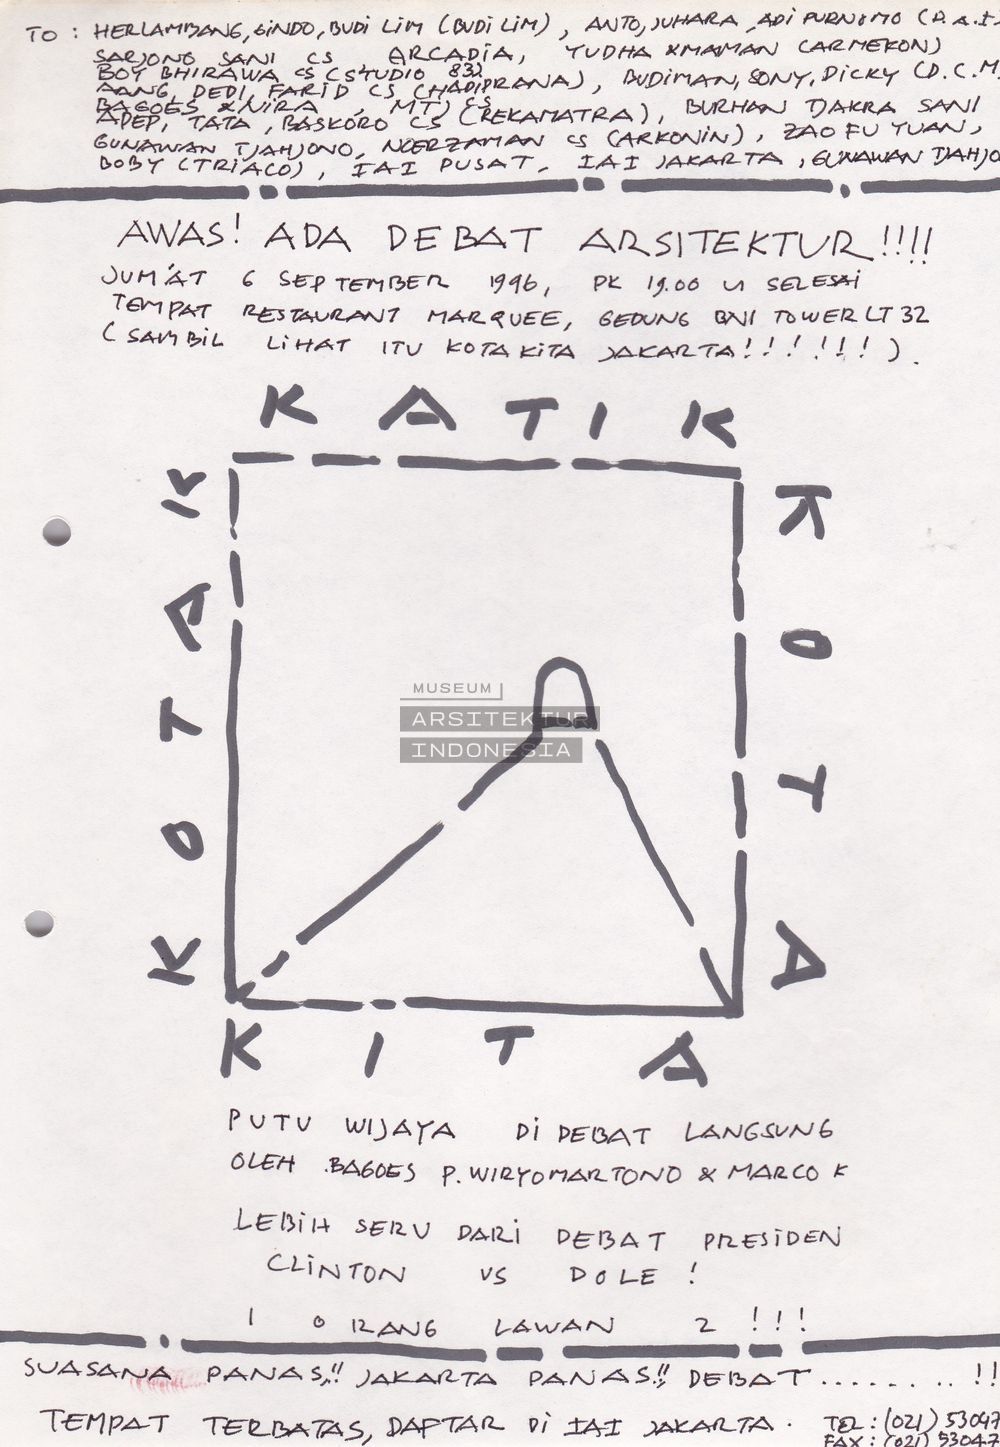 TO : HERLAMBANG, GINDO, BUDI LIM (BUDI LIM), ANTO, JUHARA, ADI PURNOMO (D.A.I.
SARJONO SANI CS ARCADIA, YUDHA & MAMAN (ARMEKON)
BOY BHIRAWA CS (STUDIO 83)
AANG, DEDI, FARID CS (HADIPRANA), BUDIMAN, SONY, DICKY (D.C.M
BAGOES & NIRA, MTJ CS
ADEP, TATA, BASKORO CS (REKAMATRA), BURHAN TJAKRA SANI
GUNAWAN TJAHJONO, NOERZAMAN CS (ARKONIN), ZAO FU YUAN,
BOBY (TRIACO), IAI PUSAT, IAI JAKARTA, GUNAWAN TJAHJO
AWAS! ADA DEBAT ARSITEKTUR!!!!
JUM'AT 6 SEPTEMBER 1996, PK 19.00 SELESAI
TEMPAT RESTAURANT MARQUEE, GEDUNG BNI TOWER LT 32
(SAMBIL LIHAT ITU KOTA KITA JAKARTA!!!!!!!).
KATIK
KOTAK
KOTA
KITA
MUSEUM
ARSITEKTUR
INDONESIA
PUTU WIJAYA DI DEBAT LANGSUNG
OLEH BAGOES P. WIRYOMARTONO & MARCO K
LEBIH SERU DARI DEBAT PRESIDEN
CLINTON VS DOLE !
1 ORANG LAWAN 2 !!!
SUASANA PANAS!! JAKARTA PANAS!! DEBAT........!!
TEMPAT TERBATAS, DAFTAR DI IAI JAKARTA. TEL : (021) 53047
FAX : (021) 53047